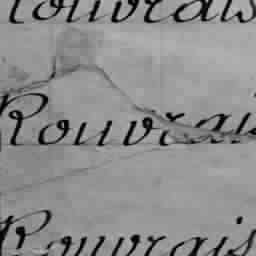 Rouvrais
Rouvrai
Rouvrais